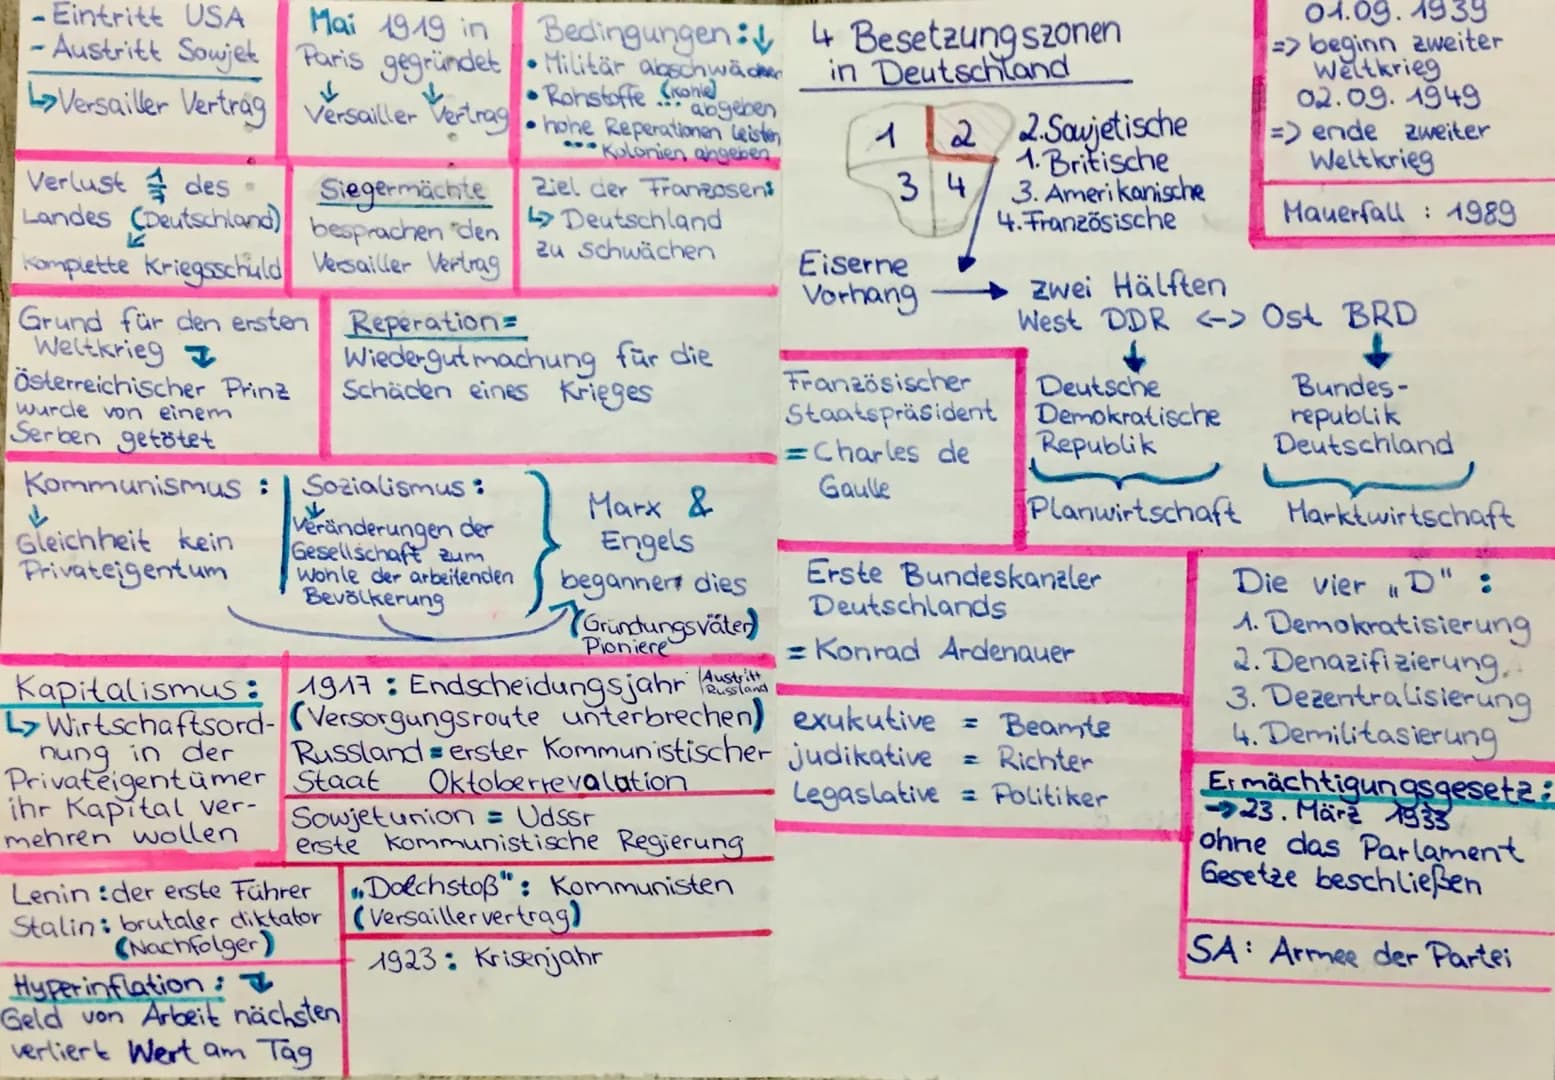 - Eintritt USA
- Austritt Sowjet
↳ Versailler Vertrag
Mai 1919 in
Paris gegründet
↓ ↓
Versailler Vertrag
Bedingungen:↓
• Militär abschwächen
• Rohstoffe (Kohle)
... abgeben
• hohe Reperationen leisten
... Kolonien abgeben
Verlust 1/7 des
Landes (Deutschland)
↙
Komplette Kriegsschuld
Siegermächte
besprachen den
Versailler Vertrag
Ziel der Franzosen:
↳ Deutschland
zu schwächen
Grund für den ersten
Weltkrieg ↴
österreichischer Prinz
wurde von einem
Serben getötet
Reperation=
Wiedergutmachung für die
Schäden eines Krieges
Kommunismus :
↓
Gleichheit kein
Privateigentum
Sozialismus :
↓
Veränderungen der
Gesellschaft zum
Wohle der arbeitenden
Bevölkerung
Marx &
Engels
begannen dies
(Gründungsväter)
Pioniere
Kapitalismus:
↳ Wirtschaftsord-
nung in der
Privateigentümer
ihr Kapital ver-
mehren wollen
1917 : Endscheidungsjahr (Austritt
Russland
(Versorgungsroute unterbrechen)
Russland = erster Kommunistischer
Staat Oktoberrevalation
Sowjetunion = Udssr
erste Kommunistische Regierung
Lenin : der erste Führer
Stalin : brutaler diktator
(Nachfolger)
"Dolchstoß": Kommunisten
(Versaillervertrag)
1923 : Krisenjahr
Hyperinflation : ↴
Geld von Arbeit nächsten
verliert Wert am Tag
4 Besetzungszonen
in Deutschland
1 2
3 4
2. Sowjetische
1. Britische
3. Amerikanische
4. Französische
Eiserne
Vorhang → zwei Hälften
West DDR <-> Ost BRD
Deutsche
Demokratische
Republik
Planwirtschaft
Bundes-
republik
Deutschland
Marktwirtschaft
01.09.1939
=> beginn zweiter
Weltkrieg
02.09.1949
=> ende zweiter
Weltkrieg
Mauerfall : 1989
Französischer
Staatspräsident
= Charles de
Gaulle
Erste Bundeskanzler
Deutschlands
= Konrad Ardenauer
Die vier „D" :
1. Demokratisierung
2. Denazifizierung
3. Dezentralisierung
4. Demilitasierung
exukutive = Beamte
judikative = Richter
Legaslative = Politiker
Ermächtigungsgesetz:
→ 23. März 1933
ohne das Parlament
Gesetze beschließen
SA: Armee der Partei